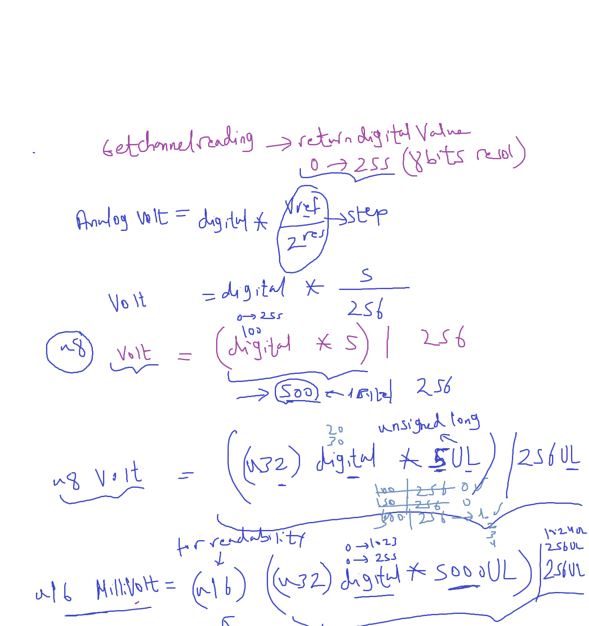 Getchannelreading → return digital Value
0 → 255 (8bits resol)
Analog volt = digital * Vref / 2^res → step
Volt = digital * 5 / 256
0→255
100
u8 Volt = (digital * 5) / 256
→ 500 ← 256
20
30
unsigned long
u8 Volt = ((u32) digital * 5UL) / 256UL
100 | 256 0
150 | 256 0
300 | 256 → 1
2
3
4
for readability
0→1023
0→255
1024UL
256UL
u16 MilliVolt = (u16) ((u32) digital * 5000UL) / 256UL